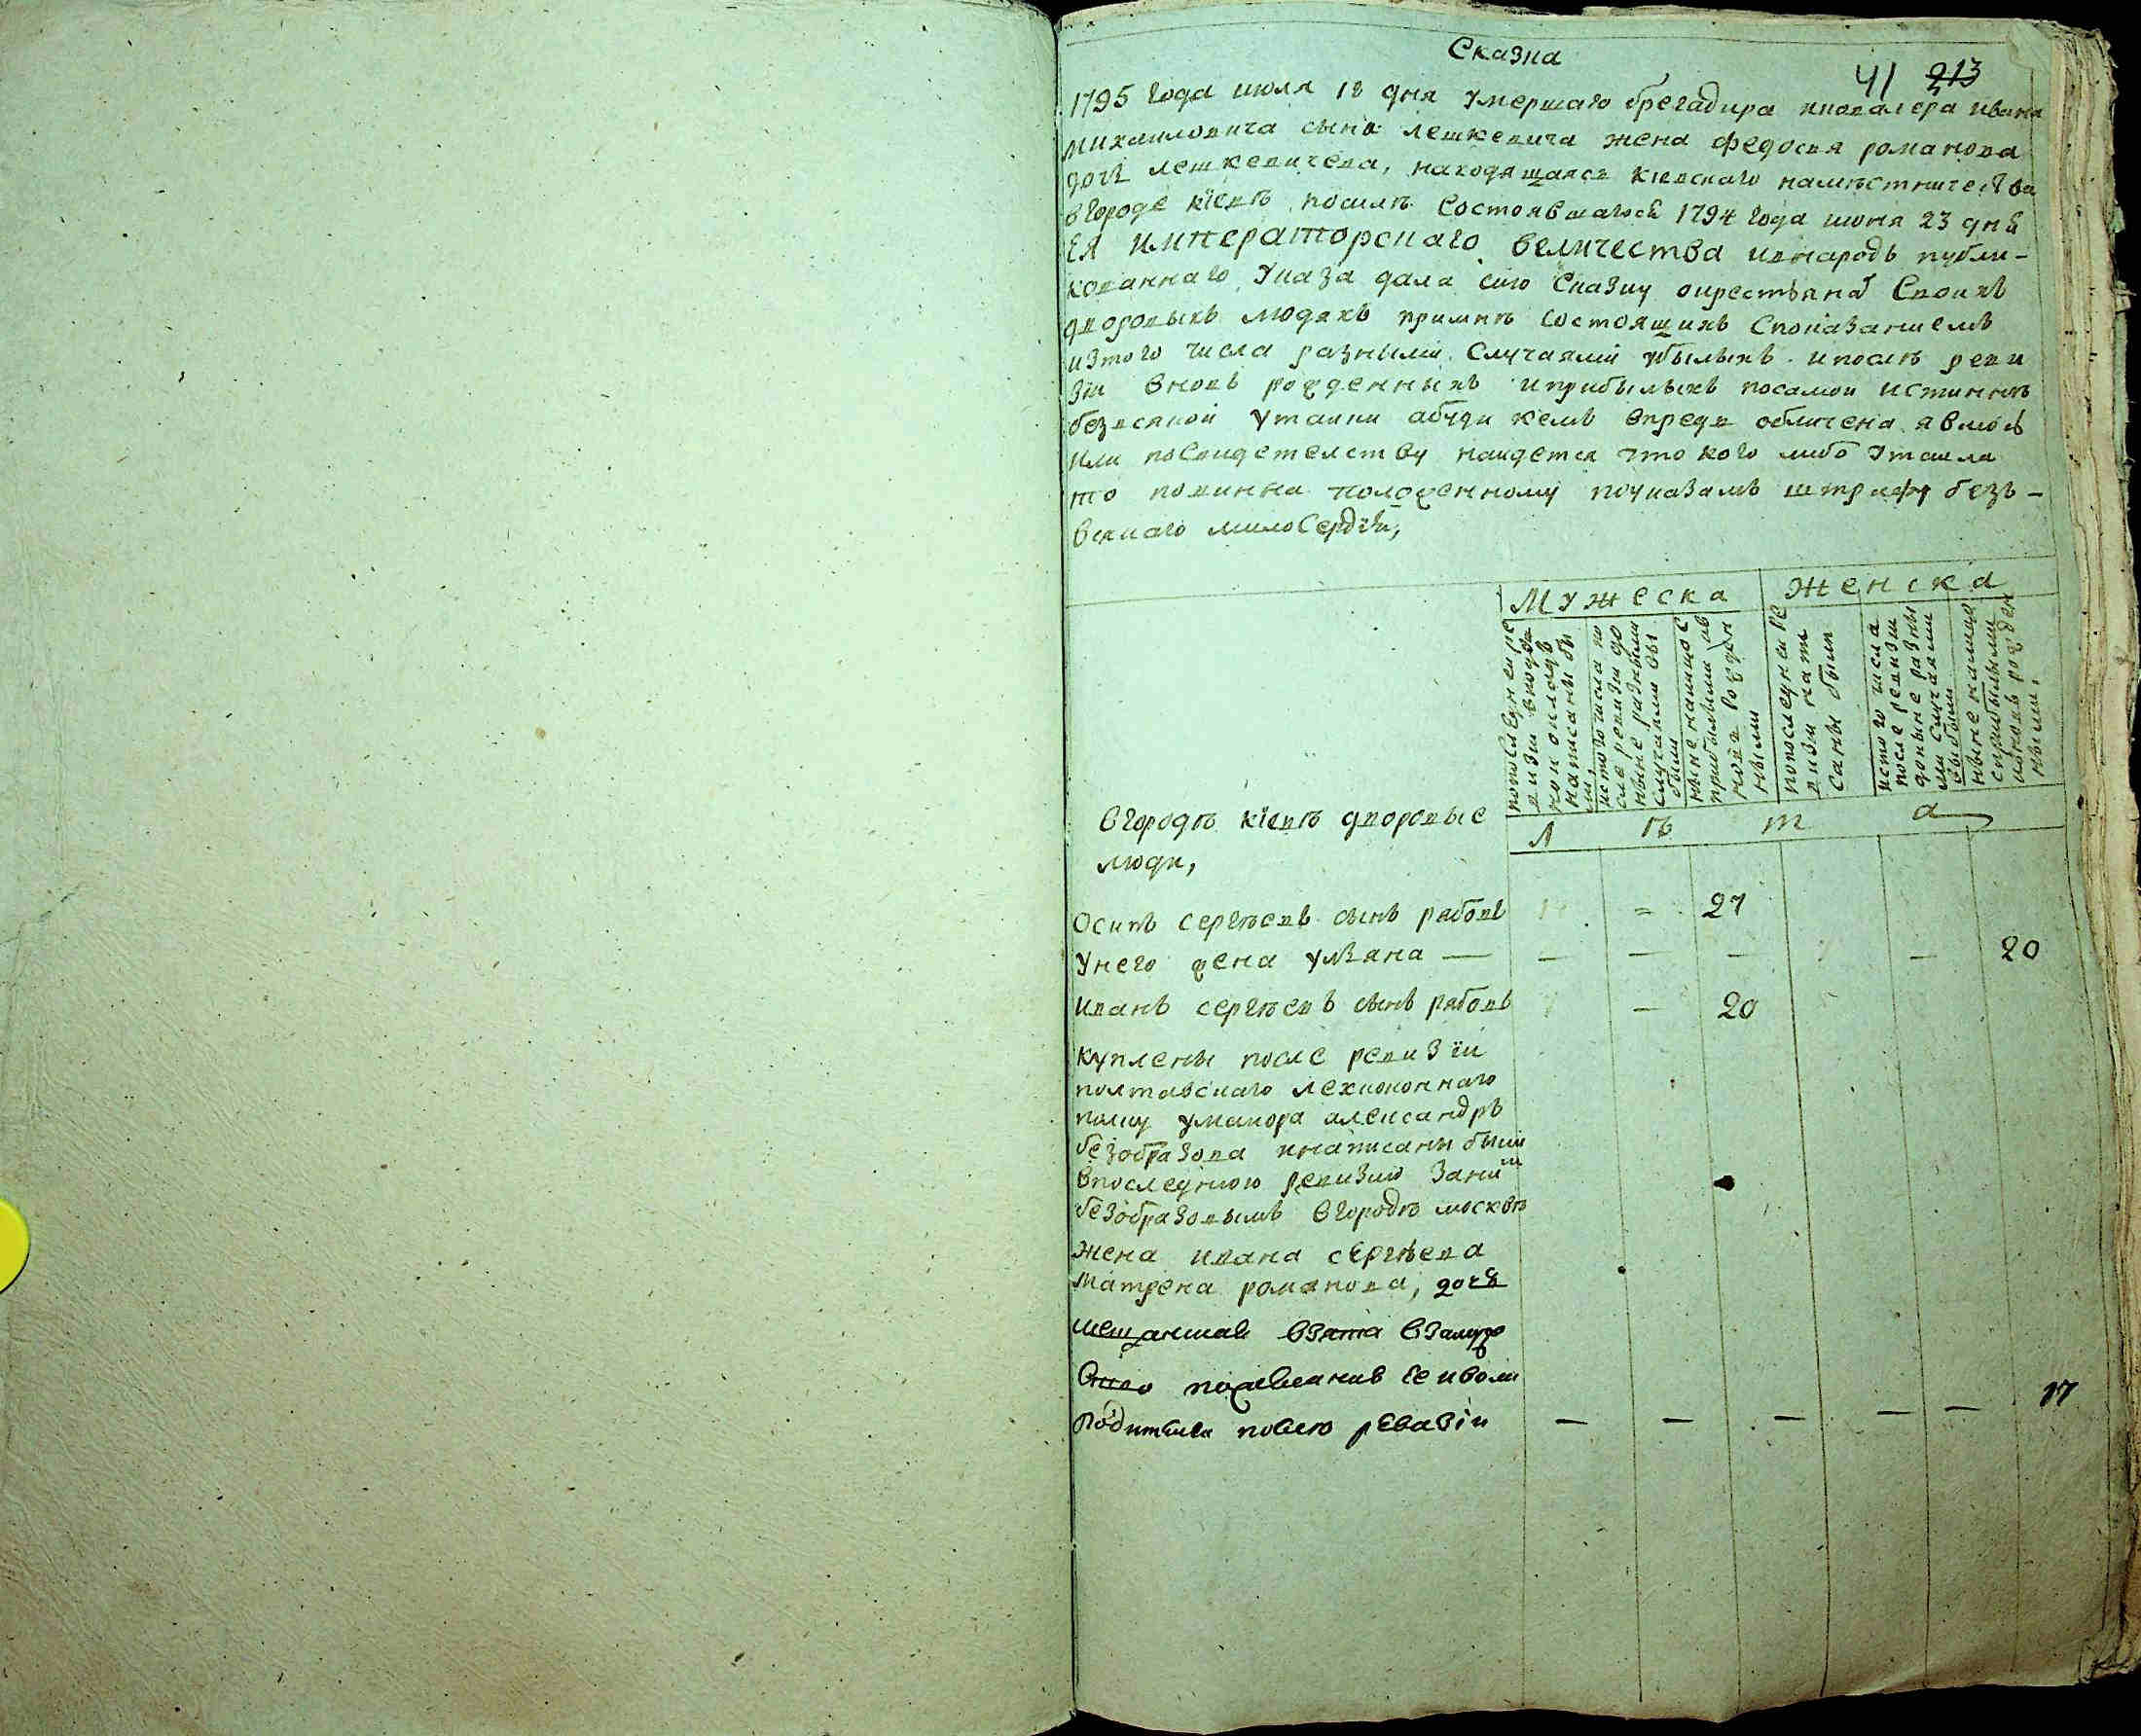 Сказка
41 213
1795 года июля 18 дня умершаго брегадира икавалера ивана
михаиловича сына лешкевича жена федосия романова
дочь лешкевичева, находящаяся киевскаго наместничества
вгороде кіевѣ, посилѣ состоявшагося 1794 года июня 23 дня
ЕЯ императорскаго величества ивнародъ публи-
кованнаго указа дала сию сказку окрестьянъ своихъ
дворовыхъ людяхъ примнѣ состоящихъ споказаниемъ
изтого числа разными случаями убылыхъ ипослѣ реви
зіи вновь рожденныхъ иприбылыхъ посамои истиннѣ
безвсякои утаики абуди кемъ впредь обличена явлюсь
или посвидетелству наидется что кого либо утаила
то повинна положенному поуказамъ штрафу безъ-
всякаго милосердія,
Мужеска женска
попоследнеи ре
визии вподу
нои окладъ
написаны бы
ли,
истого числа по
сле ревизии до
ныне разными
случаями вы
были
ныне налицо с
прибылыми ив
новь рожден
ными
попоследнеи ре
визии напи
саны были
истого числа
после ревизии
доныне разны
ми случаями
выбыли
ныне налицо
сприбылыми
ивновь рожден
ными,
Л ѣ т а
вгородѣ кіевѣ дворовые
люди,
осипъ сергѣевъ сынъ рябовъ = 27
унего жена ульяна — — — — — 20
иванъ сергѣевъ сынъ рябовъ — 20
куплены после ревизіи
полтавскаго лехкоконнаго
полку умаиора александръ
безобразова инаписаны были
впоследнюю ревизию заним
безобразовымъ вгородѣ москвѣ
жена ивана сергѣева
матрена романова, дочь
мещанская взята взамуж
оного пожеланию ее иволи
родителя после ревизіи — — — — — 17